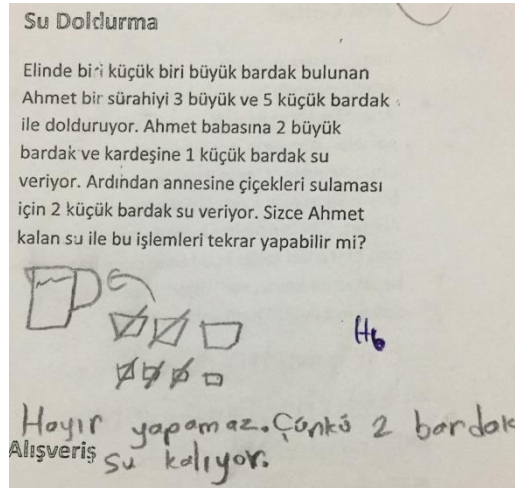 Su Doldurma
Elinde biri küçük biri büyük bardak bulunan
Ahmet bir sürahiyi 3 büyük ve 5 küçük bardak
ile dolduruyor. Ahmet babasına 2 büyük
bardak ve kardeşine 1 küçük bardak su
veriyor. Ardından annesine çiçekleri sulaması
için 2 küçük bardak su veriyor. Sizce Ahmet
kalan su ile bu işlemleri tekrar yapabilir mi?
H6
Hayır yapamaz. Çünkü 2 bardak
su kalıyor.
Alışveriş